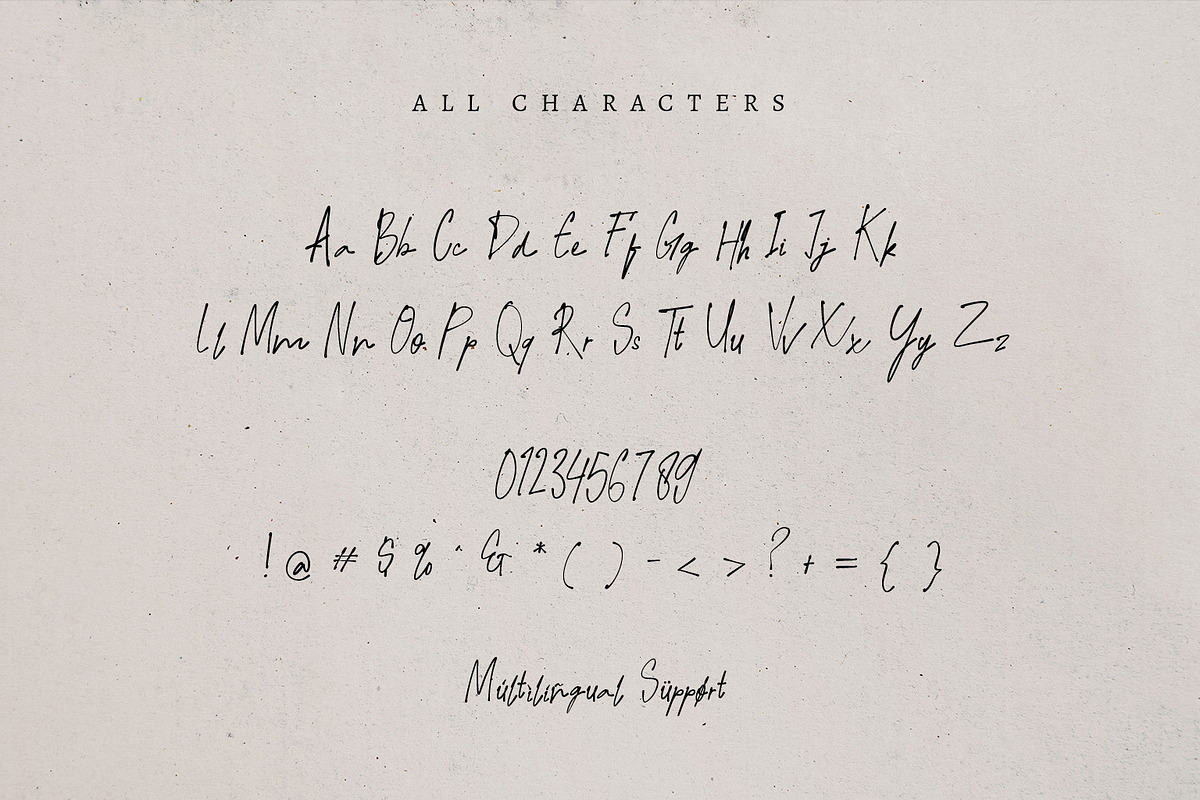 ALL CHARACTERS
Aa Bb Cc Dd Ee Ff Gg Hh Ii Jj Kk
Ll Mm Nn Oo Pp Qq Rr Ss Tt Uu Vv Xx Yy Zz
0123456789
! @ # $ % ^ & * ( ) - < > ? + = { }
Múltilíñgual Süppørt